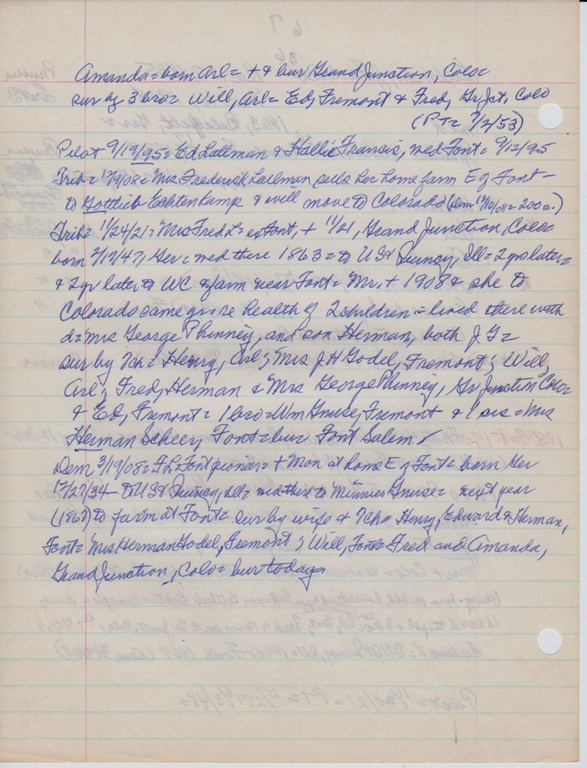 Amanda = born Arl = + & bur Grand Junction, Colo =
sur by 3 bro = Will, Arl = Ed, Fremont & Fred, Gr Jct, Colo
(PT = 7/2/53)
Pilot 9/19/95 = Ed Lallman & Hallie Francis, med Font = 9/12/95
Trib = 1908 = Mrs Frederick Lallman sells her home farm E of Font -
to Gottlieb Echtenkamp & will move to Colorado (Dem 08 = 200 a.)
Trib = 1/24/21 = Mrs Fred L = ex Font, + 1/21, Grand Junction, Colo =
born 2/19/47, Ger = med there 1863 = to US & Quincy, Ill = 2 yrs later =
& 2 yr later to WC & farm near Font = Mr. + 1908 & she to
Colorado same yr = re health of 2 children = lived there with
d = Mrs George Phinney, and son Herman, both G J =
sur by 7 ch = Henry, Arl; Mrs J H Godel, Fremont; Will,
Arl; Fred, Herman & Mrs George Phinney, Gr Junction Colo =
& Ed, Fremont = 1 bro = Wm Gnuse, Fremont & 1 sis = Mrs
Herman Scheer, Font = bur Font Salem
Dem 3/19/08 = F L Font pioneer = + Mon at home E of Font = born Ger
12/27/34 = to US & Quincy, Ill = med there to Minnie Gnuse = next year
(1867) to farm at Font = sur by wife & 7 ch = Henry, Edward & Herman,
Font = Mrs Herman Godel, Fremont; Will, Font = Fred and Amanda,
Grand Junction, Colo = bur today =